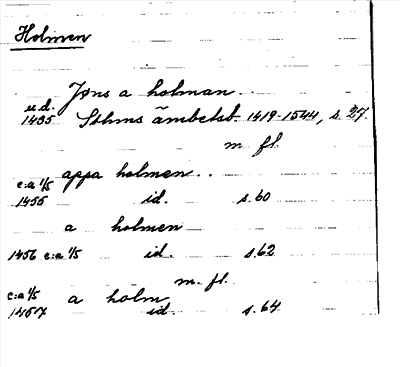 Holmen
Jöns a holman.
u.d.
1435 Sthms ämbetsb. 1419-1544, s. 27.
m fl.
appa holmen..
c:a 1/5
1455 id. s.60
a holmen
1456 c:a 1/5 id. s.62
m. fl.
c:a 1/5 a holm
1457 id. s.64